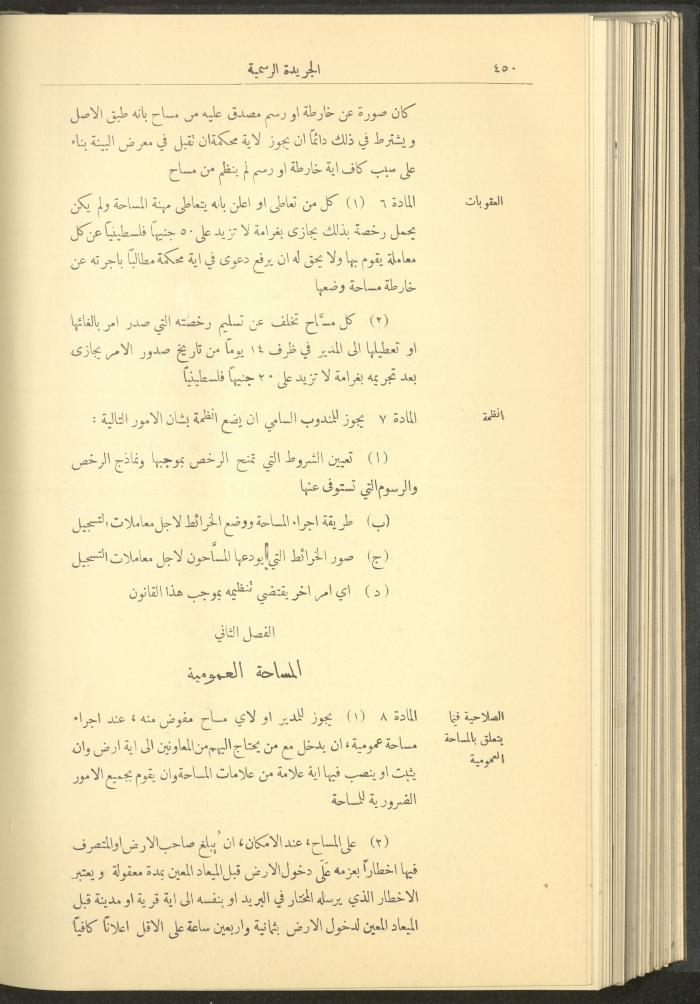 ٤٥٠
الجريدة الرسمية
كان صورة عن خارطة او رسم مصدق عليه من مساح بانه طبق الاصل
ويشترط في ذلك دائمًا ان يجوز لاية محكمة ان تقبل في معرض البينة بناء
على سبب كاف اية خارطة او رسم لم ينظم من مساح
العقوبات
المادة ٦ (١) كل من تعاطى او اعلن بانه يتعاطى مهنة المساحة ولم يكن
يحمل رخصة بذلك يجازى بغرامة لا تزيد على ٥٠ جنيهًا فلسطينيًا عن كل
معاملة يقوم بها ولا يحق له ان يرفع دعوى في اية محكمة مطالبًا باجرته عن
خارطة مساحة وضعها
(٢) كل مسَّاح تخلف عن تسليم رخصته التي صدر امر بالغائها
او تعطيلها الى المدير في ظرف ١٤ يومًا من تاريخ صدور الامر يجازى
بعد تجريمه بغرامة لا تزيد على ٢٠ جنيهًا فلسطينيًا
انظمة
المادة ٧ يجوز للمندوب السامي ان يضع انظمة بشان الامور التالية :
(ا) تعيين الشروط التي تمنح الرخص بموجبها ونماذج الرخص
والرسوم التي تستوفى عنها
(ب) طريقة اجراء المساحة ووضع الخرائط لاجل معاملات التسجيل
(ج) صور الخرائط التي يودعها المسَّاحون لاجل معاملات التسجيل
(د) اي امر اخر يقتضي تنظيمه بموجب هذا القانون
الفصل الثاني
المساحة العمومية
الصلاحية فيما
يتعلق بالمساحة
العمومية
المادة ٨ (١) يجوز للمدير او لاي مساح مفوض منه ، عند اجراء
مساحة عمومية ، ان يدخل مع من يحتاج اليهم من المعاونين الى اية ارض وان
يثبت او ينصب فيها اية علامة من علامات المساحة وان يقوم بجميع الامور
الضرورية للمساحة
(٢) على المساح ، عند الامكان ، ان يُبلغ صاحب الارض او المتصرف
فيها اخطارًا بعزمه عَلَى دخول الارض قبل الميعاد المعين بمدة معقولة ويعتبر
الاخطار الذي يرسله المختار في البريد او بنفسه الى اية قرية او مدينة قبل
الميعاد المعين لدخول الارض بثمانية واربعين ساعة على الاقل اعلانًا كافيًا